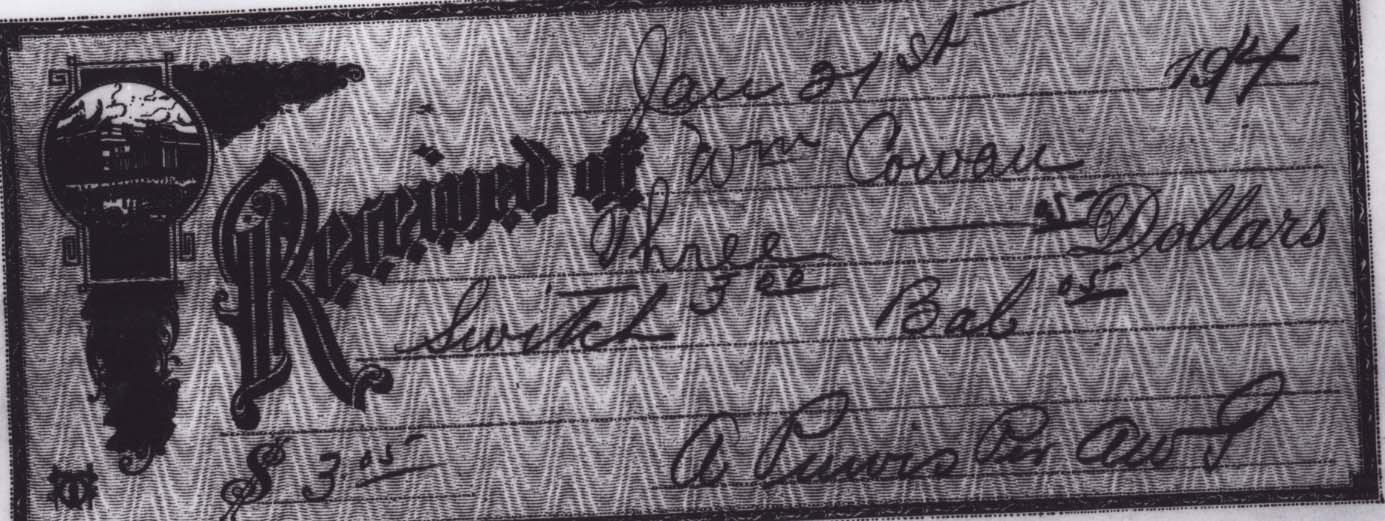 Jan 21st 1914
Received of Wm Cowan
Three 05 Dollars
Switch 3 00 Bal 05
$ 3.05
A Purvis Per AW